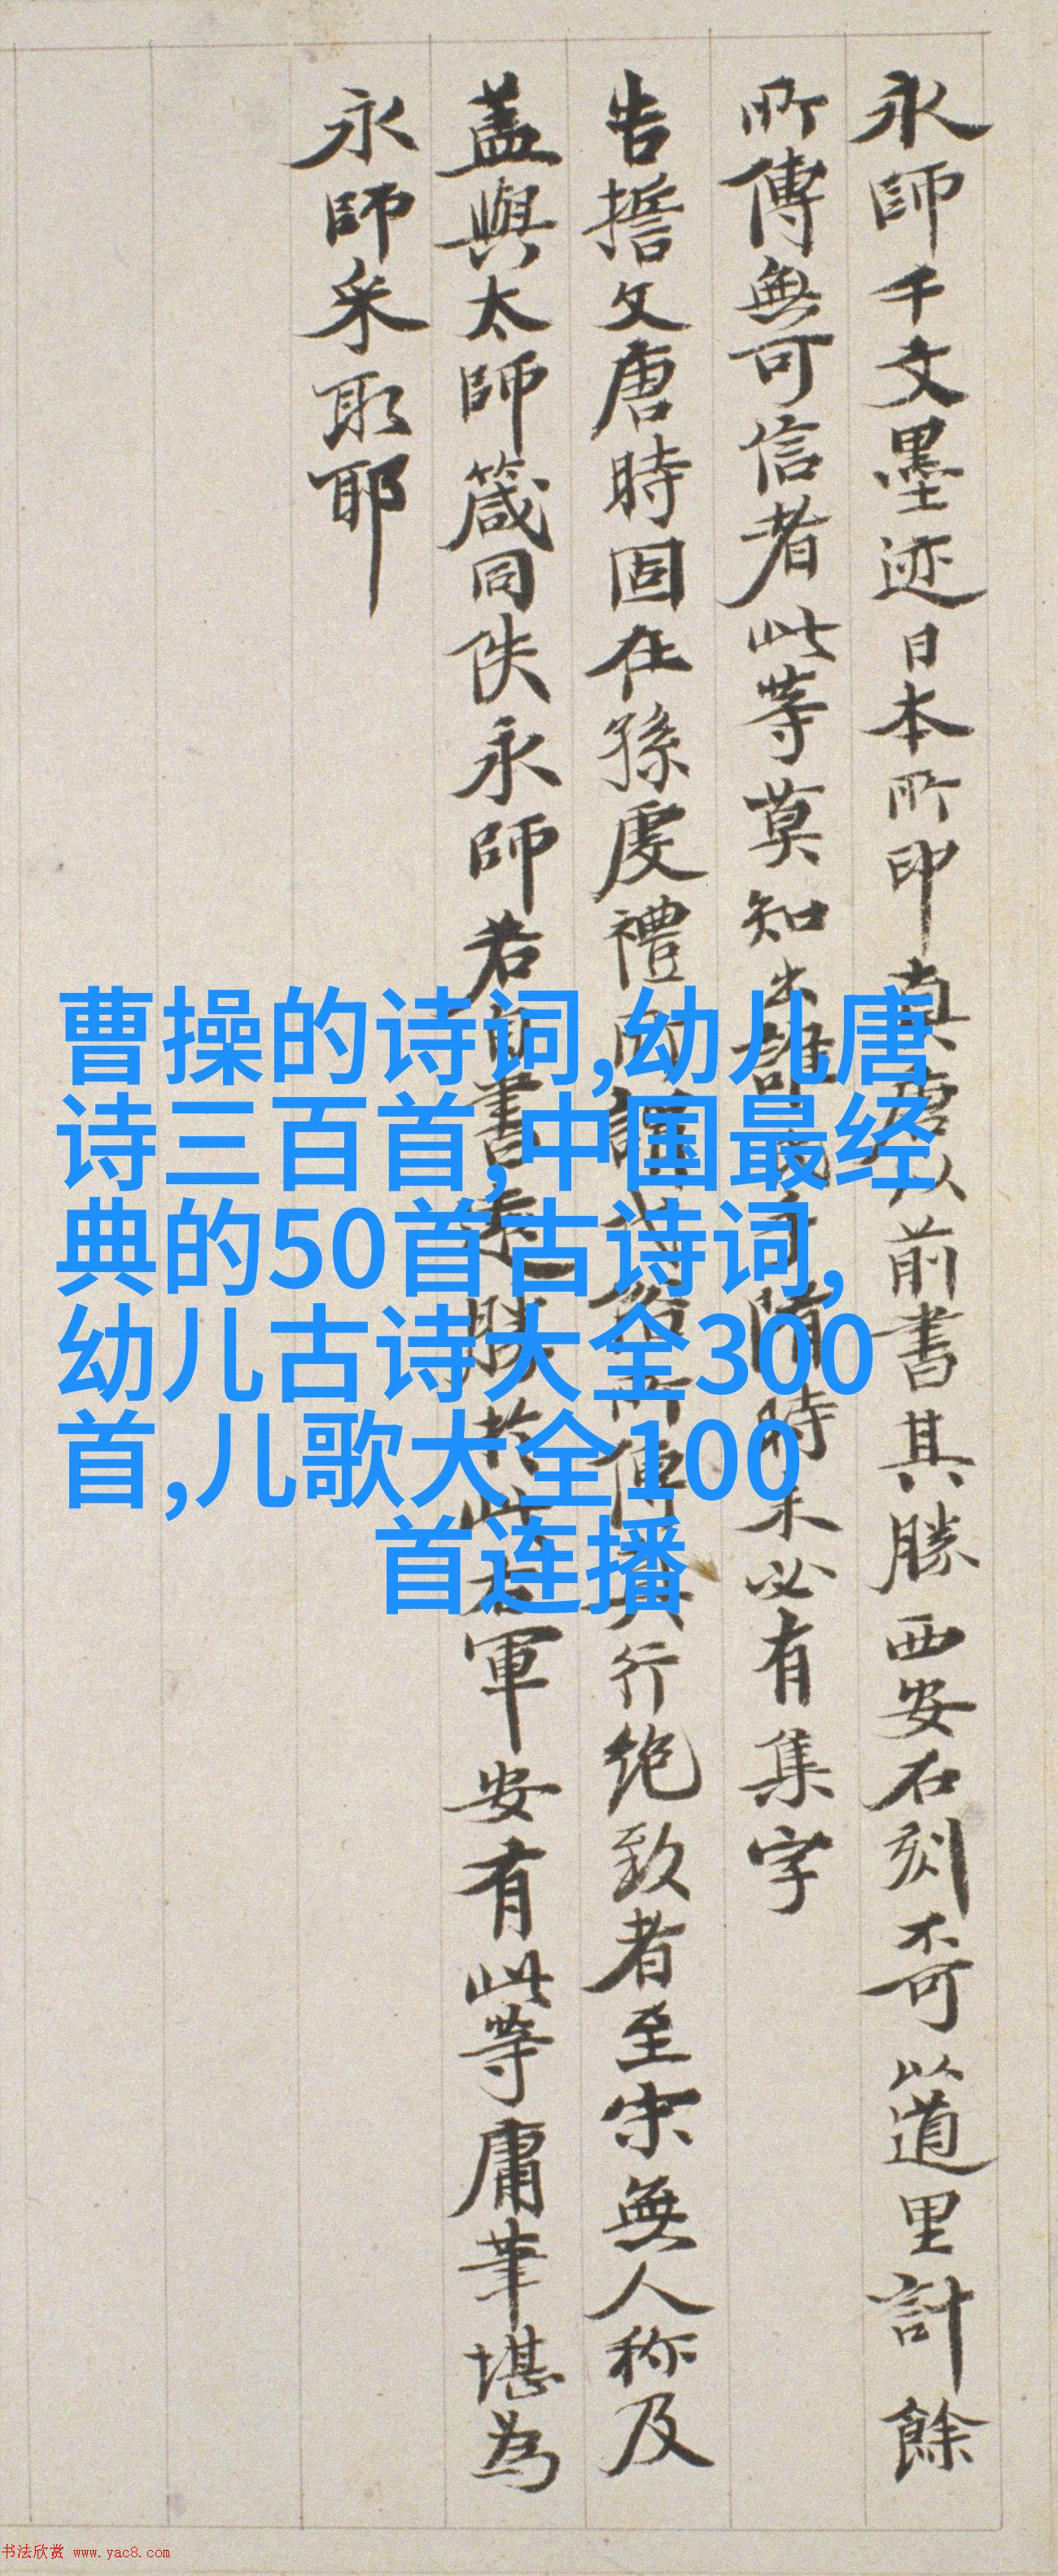 永師千文墨迹日本所印真唐以前書其勝西安石刻奇以道里計餘
所傳無可信者此等莫知出誰氏手隋時未必有集字
告誓文唐時固在孫虔禮行絶致者至宋無人称及
盖與太師箴同佚永師若自書逺勝於此右軍安有此等庸筆堪為
永師采取耶
曹操的诗词,幼儿唐
诗三百首,中国最经
典的50首古诗词,
幼儿古诗大全300
首,儿歌大全100
首连播
书法欣赏 www.yac8.com